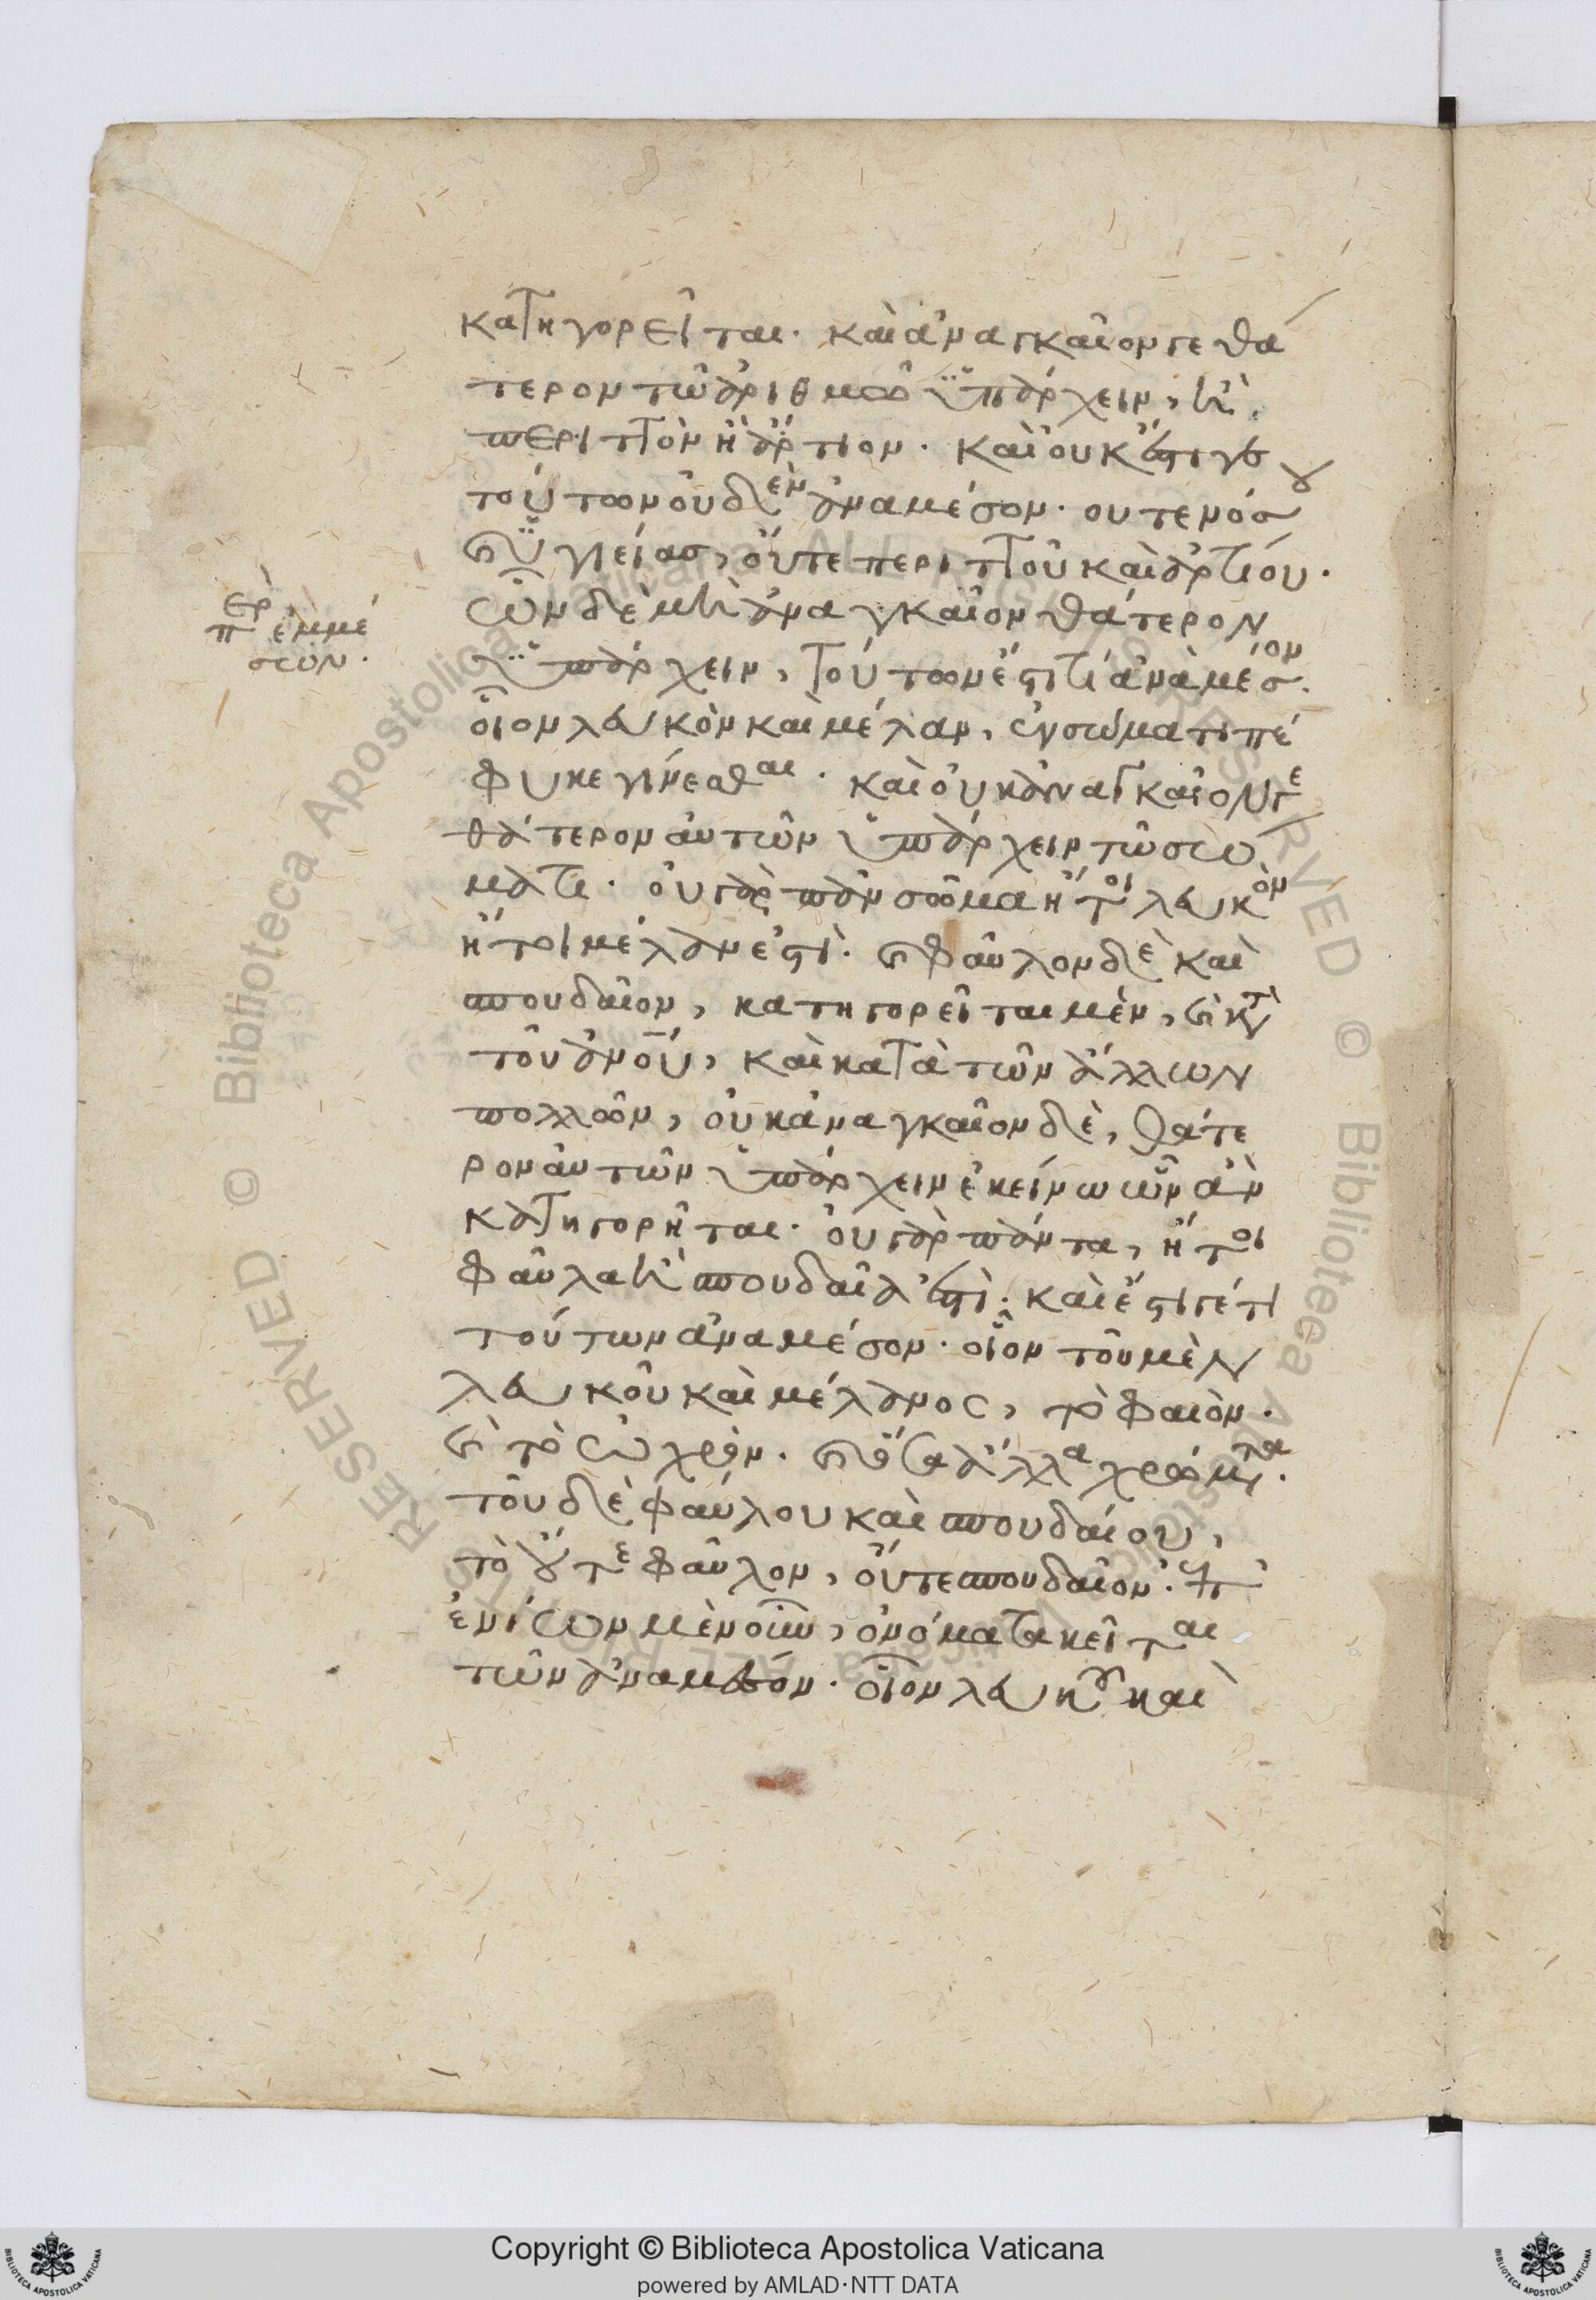 κατηγορεῖται· καὶ ἀναγκαῖόν γε θά
τερον τῶ ἀριθμῶ ὑπάρχειν, ἢ
περιττὸν ἢ ἄρτιον· καὶ οὐκ ἔστι γε
τούτων οὐδὲν ἀναμέσον· οὔτε νόσου
καὶ ὑγιείας, οὔτε περιττοῦ καὶ ἀρτίου·
ὧν δὲ μὴ ἀναγκαῖον θάτερον
ὑπάρχειν, τούτων ἔστι τί ἀνὰ μέσον·
οἷον λευκὸν καὶ μέλαν, ἐν σώματι πέ
φυκε γίνεσθαι· καὶ οὐκ ἀναγκαῖόν γε
θάτερον αὐτῶν ὑπάρχειν τῶ σώ
ματι· οὐ γὰρ πᾶν σῶμα ἤτοι λευκὸν
ἤτοι μέλαν ἐστὶ· καὶ φαῦλον δὲ καὶ
σπουδαῖον, κατηγορεῖται μὲν, καὶ κατὰ
τοῦ ἀνου, καὶ κατὰ τῶν ἄλλων
πολλῶν, οὐκ ἀναγκαῖον δὲ, θάτε
ρον αὐτῶν ὑπάρχειν ἐκείνω ὧν ἂν
κατηγορῆται· οὐ γὰρ πάντα, ἤτοι
φαῦλα ἢ σπουδαῖά ἐστὶ· καὶ ἔστι γέ τι
τούτων ἀναμέσον· οἷον τοῦ μὲν
λευκοῦ καὶ μέλανος, τὸ φαιὸν·
καὶ τὸ ὠχρὸν· καὶ ὅσα ἄλλα χρώματα·
τοῦ δὲ φαύλου καὶ σπουδαίου,
τὸ οὔτε φαῦλον, οὔτε σπουδαῖον· ἐπ
ἐνίων μὲν οὖν, ὀνόματα κεῖται
τῶν ἀναμέσον· οἷον λευκοῦ καὶ
περὶ ἐμμέ
σων·
Copyright © Biblioteca Apostolica Vaticana
powered by AMLAD·NTT DATA